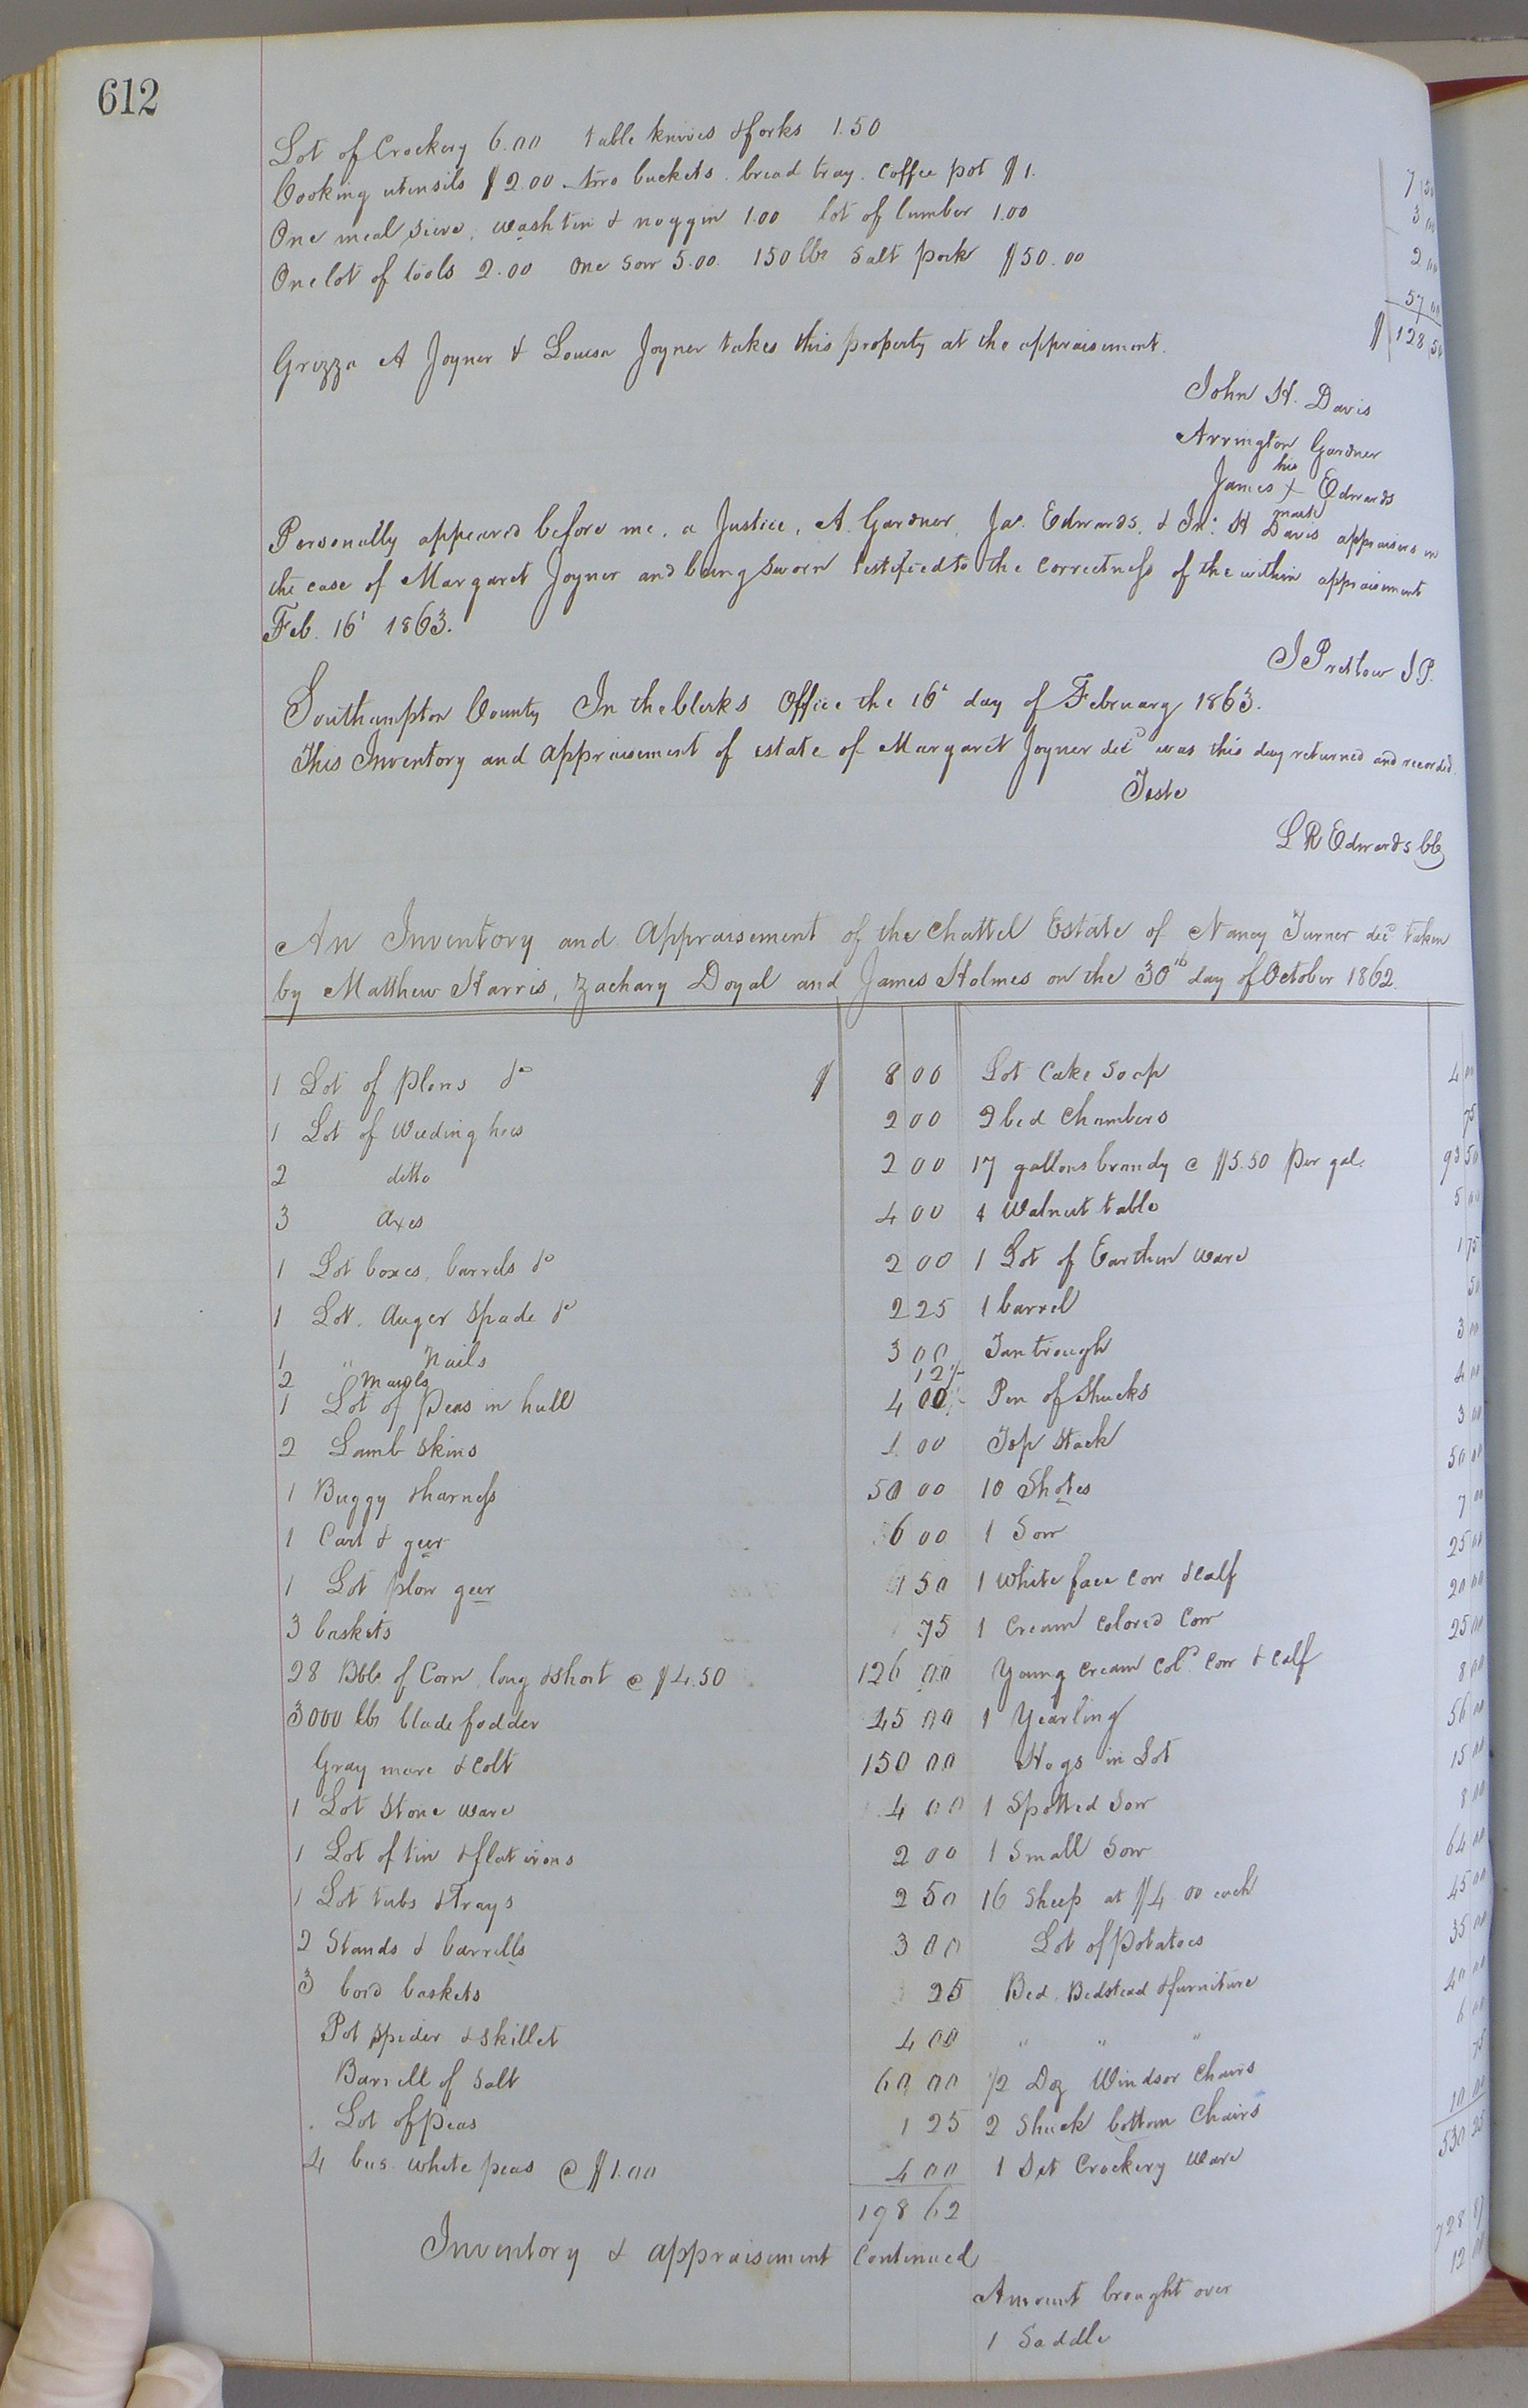 612
Lot of Crockery 6.00 table knives & forks 1.50 7 50
Cooking utensils $2.00 two buckets. bread tray. Coffee pot $1. 3 00
One meal sieve, wash tin & noggin 1.00 lot of lumber 1.00 2 00
One lot of tools 2.00 One Sow 5.00. 150 lbs Salt pork $50.00 57 00
$ 128 50
Grizza A Joyner & Louisa Joyner takes this property at the appraisement.
John H. Davis
Arrington Gardner
his
James + Edwards
mark
Personally appeared before me, a Justice, A. Gardner, Jas. Edwards, & Jno. H Davis appraisers in
the case of Margaret Joyner and being Sworn testified to the correctness of the within appraisement
Feb. 16' 1863.
J Pretlow J.P.
Southampton County In the Clerks Office the 16' day of February 1863.
This Inventory and appraisement of estate of Margaret Joyner decd was this day returned and recorded.
Teste
L R Edwards CC
An Inventory and Appraisement of the Chattel Estate of Nancy Turner decd taken
by Matthew Harris, Zachary Doyal and James Holmes on the 30th day of October 1862.
1 Lot of Plows &c $ 8 00 Lot Cake Soap 4 00
1 Lot of Weeding hoes 2 00 2 bed Chambers 75
2 ditto 2 00 17 gallons brandy @ $5.50 per gal. 93 50
3 Axes 4 00 1 Walnut table 5 00
1 Lot boxes, barrels &c 2 00 1 Lot of Earthen ware 1 75
1 Lot. Auger Spade &c 2 25 1 barrel 50
1 " Nails 3 00 Tan trough 3 00
2 Mauls 12½
1 Lot of Peas in hull 4 00 Pen of Shucks 4 00
2 Lamb Skins 1 00 Top Stack 3 00
1 Buggy & harness 50 00 10 Shotes 50 00
1 Cart & geer 6 00 1 Sow 7 00
1 Lot plow geer 1 50 1 White face cow & calf 25 00
3 baskets 75 1 Cream colored Cow 20 00
28 Bbls of Corn, long & short @ $4.50 126 00 Young cream cold. cow & calf 25 00
3000 lbs blade fodder 45 00 1 Yearling 8 00
Gray mare & Colt 150 00 Hogs in Lot 56 00
1 Lot Stone ware 4 00 1 Spotted Sow 15 00
1 Lot of tin & flat irons 2 00 1 Small Sow 8 00
1 Lot tubs & Trays 2 50 16 Sheep at $4.00 each 64 00
2 Stands & barrells 3 00 Lot of Potatoes 45 00
3 bord baskets 25 Bed, Bedstead & furniture 35 00
Pot Spider & Skillet 4 00 " " " 40 00
Barrell of Salt 60 00 1/2 Doz Windsor Chairs 6 00
Lot of peas 1 25 2 Shuck bottom Chairs 75
4 bus. white peas @ $1.00 4 00 1 Set Crockery Ware 10 00
198 62 530 25
Inventory & appraisement Continued
Amount brought over 728 87
1 Saddle 12 00